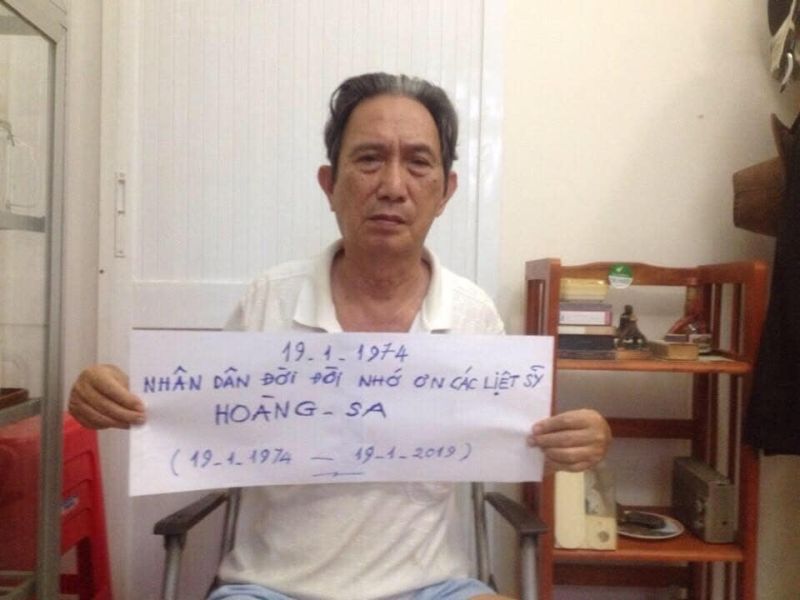 19-1-1974
NHÂN DÂN ĐỜI ĐỜI NHỚ ƠN CÁC LIỆT SỸ
HOÀNG-SA
(19-1-1974 — 19-1-2019)